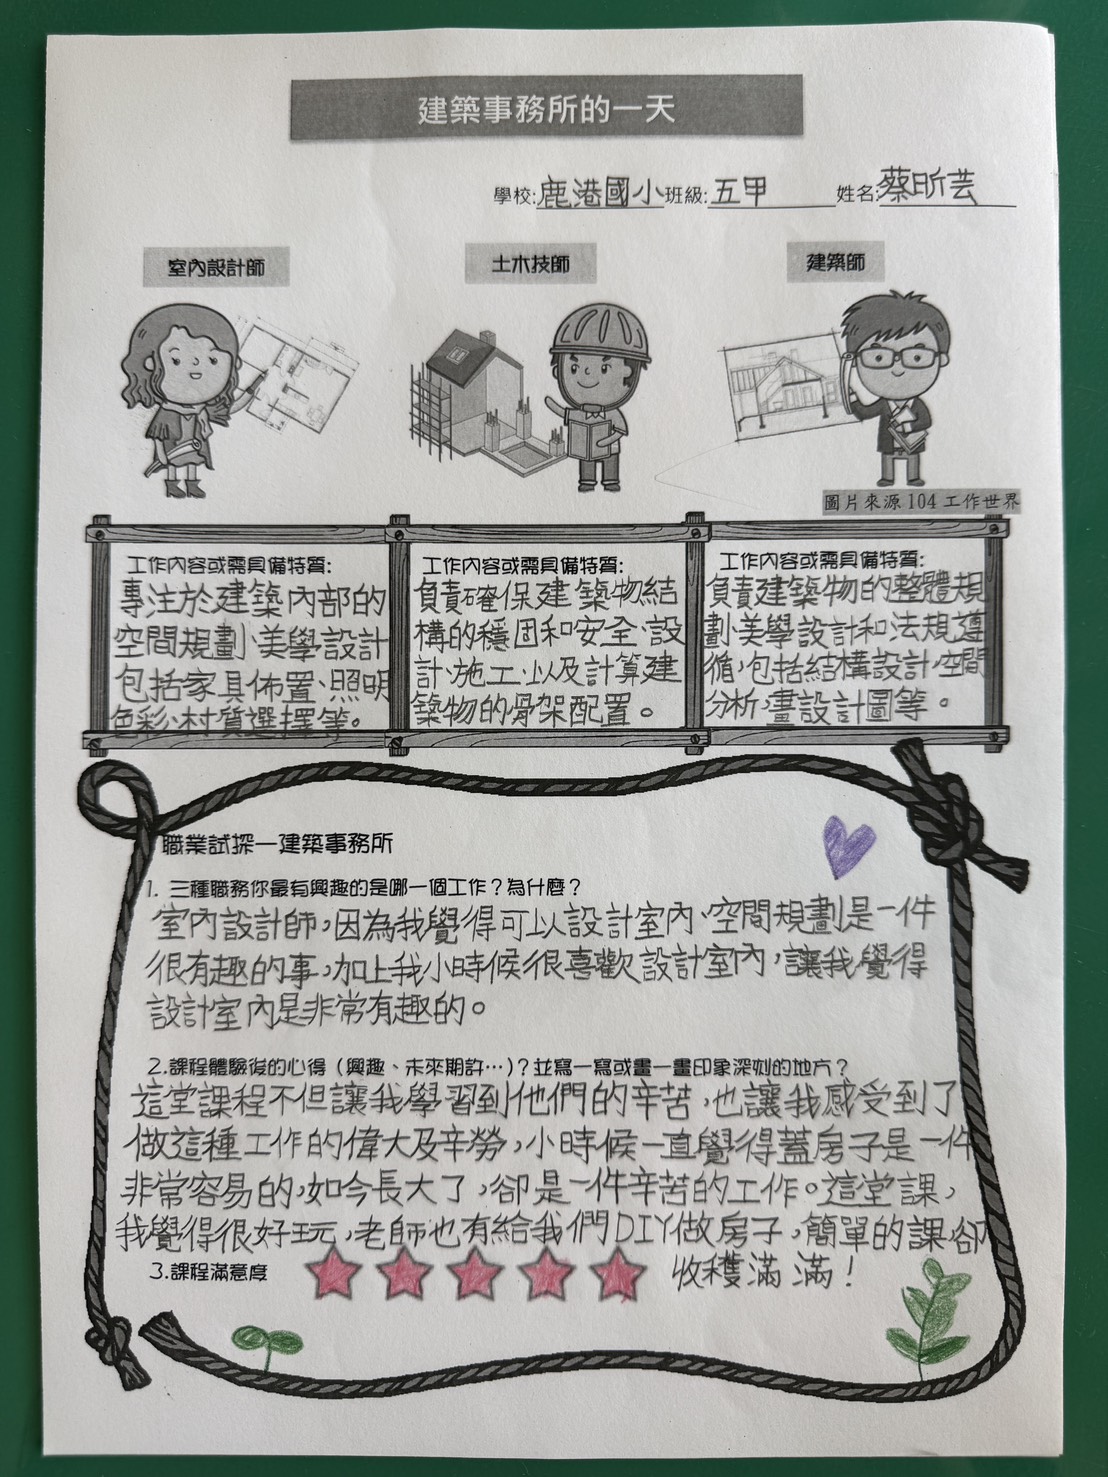 建築事務所的一天
學校:鹿港國小班級:五甲 姓名:蔡昕芸
室內設計師
土木技師
建築師
圖片來源 104 工作世界
工作內容或需具備特質:
專注於建築內部的
空間規劃、美學設計
包括家具佈置、照明
色彩、材質選擇等。
工作內容或需具備特質:
負責確保建築物結
構的穩固和安全、設
計、施工、以及計算建
築物的骨架配置。
工作內容或需具備特質:
負責建築物的整體規
劃、美學設計和法規遵
循,包括結構設計、空間
分析、畫設計圖等。
職業試探—建築事務所
1. 三種職務你最有興趣的是哪一個工作？為什麼？
室內設計師,因為我覺得可以設計室內、空間規劃是一件
很有趣的事,加上我小時候很喜歡設計室內,讓我覺得
設計室內是非常有趣的。
2.課程體驗後的心得（興趣、未來期許…）？並寫一寫或畫一畫印象深刻的地方？
這堂課程不但讓我學習到他們的辛苦,也讓我感受到了
做這種工作的偉大及辛勞,小時候一直覺得蓋房子是一件
非常容易的,如今長大了,卻是一件辛苦的工作。這堂課,
我覺得很好玩,老師也有給我們DIY做房子,簡單的課卻
收穫滿滿！
3.課程滿意度